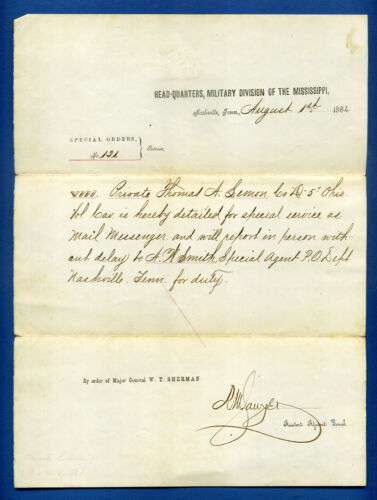 HEAD-QUARTERS, MILITARY DIVISION OF THE MISSISSIPPI,
Nashville, Tenn., August 1st 1864
SPECIAL ORDERS,
No. 131.
Extract.
Private Thomas A. Lemon Co D. 5" Ohio
Vol Cav. is hereby detailed for special service as
Mail Messenger and will report in person with-
out delay to A. H Smith Special Agent P.O. Dept
Nashville, Tenn. for duty.
By order of Major General W. T. SHERMAN
R M Sawyer
Assistant Adjutant General